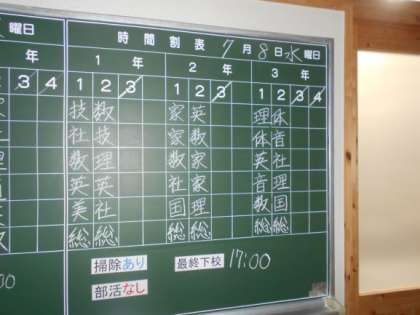 曜日 時間割表 7月8日水曜日
年 1年 2年 3年
3 4 1 2 3 1 2 3 1 2 3 4
技 数 家 英 理 体
社 技 家 数 体 音
数 理 数 家 英 社
英 英 社 家 音 理
美 社 国 理 数 国
総 総 総 総 総 総
掃除あり 最終下校 17:00
部活なし